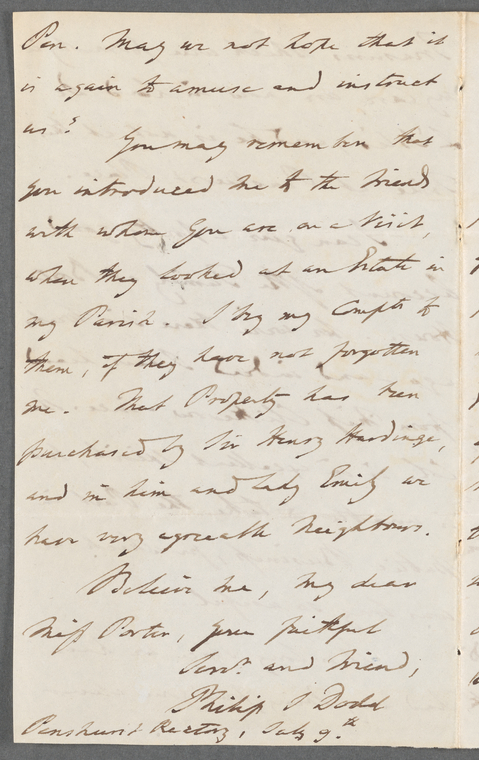 Pen. May we not hope that it
is again to amuse and instruct
us? You may remember that
you introduced me to the Friends
with whom you are on a Visit,
when they looked at an Estate in
my Parish. I beg my Compts to
them, if they have not forgotten
me. That Property has been
purchased by Sir Henry Hardinge,
and in him and Lady Emily we
have very agreeable Neighbours.
Believe me, my dear
Miss Porter, your faithful
Servt and Friend,
Philip S Dodd
Penshurst Rectory, July 9.th